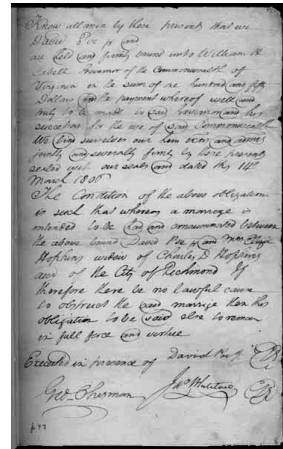 Know all men by these presents that we
David Poe jr and
are held and firmly bound unto William H
Cabell Governor of the Commonwealth of
Virginia in the sum of one hundred and fifty
Dollars and the payment whereof well and
truly to be made to said Governor and his
successors for the use of said Commonwealth
We bind ourselves our heirs exors and admrs
jointly and severally firmly by these presents
sealed with our seals and dated this 14th
March 1806
The Condition of the above obligation
is such that whereas a marriage is
intended to be had and consummated between
the above bound David Poe jr and Mrs
Hopkins widow of Charles D Hopkins
of the City of Richmond If
therefore there be no lawful cause
to obstruct the said marriage then this
obligation to be void else to remain
in full force and virtue
Executed in presence of David Poe jr
Geo Sherman